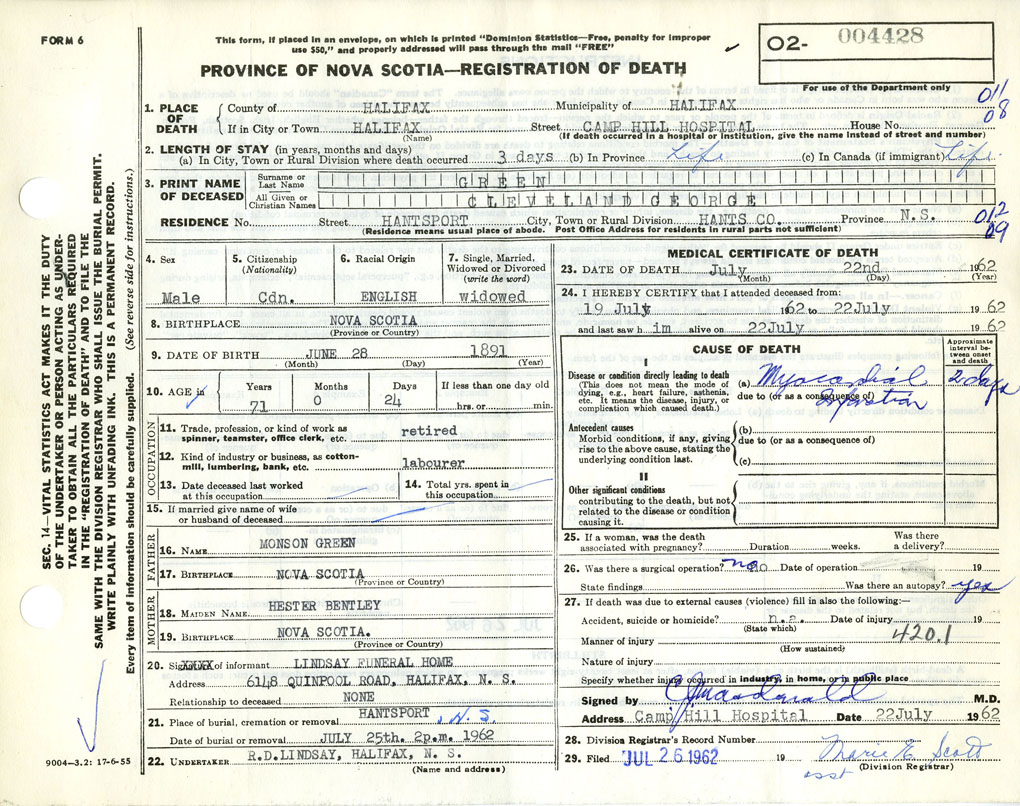 FORM 6
This form, if placed in an envelope, on which is printed "Dominion Statistics—Free, penalty for improper
use $50," and properly addressed will pass through the mail "FREE"
O2- 004428
For use of the Department only
PROVINCE OF NOVA SCOTIA—REGISTRATION OF DEATH
011
08
1. PLACE OF DEATH County of HALIFAX Municipality of HALIFAX
If in City or Town HALIFAX Street CAMP HILL HOSPITAL House No.
(Name) (If death occurred in a hospital or institution, give the name instead of street and number)
2. LENGTH OF STAY (in years, months and days)
(a) In City, Town or Rural Division where death occurred 3 days (b) In Province Life (c) In Canada (if immigrant) Life.
3. PRINT NAME OF DECEASED Surname or Last Name GREEN
All Given or Christian Names CLEVELAND GEORGE
RESIDENCE No. Street HANTSPORT City, Town or Rural Division HANTS CO. Province N.S.
(Residence means usual place of abode. Post Office Address for residents in rural parts not sufficient)
012
09
4. Sex Male
5. Citizenship (Nationality) Cdn.
6. Racial Origin ENGLISH
7. Single, Married, Widowed or Divorced (write the word) widowed
8. BIRTHPLACE NOVA SCOTIA
(Province or Country)
9. DATE OF BIRTH JUNE 28 1891
(Month) (Day) (Year)
10. AGE Years Months Days If less than one day old
71 0 24 hrs. or min.
OCCUPATION
11. Trade, profession, or kind of work as spinner, teamster, office clerk, etc. retired
12. Kind of industry or business, as cotton-mill, lumbering, bank, etc. labourer
13. Date deceased last worked at this occupation
14. Total yrs. spent in this occupation
15. If married give name of wife or husband of deceased
FATHER
16. NAME MONSON GREEN
17. BIRTHPLACE NOVA SCOTIA
(Province or Country)
MOTHER
18. MAIDEN NAME HESTER BENTLEY
19. BIRTHPLACE NOVA SCOTIA.
(Province or Country)
20. of informant LINDSAY FUNERAL HOME
Address 6148 QUINPOOL ROAD, HALIFAX, N. S.
Relationship to deceased NONE
21. Place of burial, cremation or removal HANTSPORT, N.S.
Date of burial or removal JULY 25th. 2p.m. 1962
22. UNDERTAKER R.D.LINDSAY, HALIFAX, N. S.
(Name and address)
MEDICAL CERTIFICATE OF DEATH
23. DATE OF DEATH July 22nd 1962
(Month) (Day) (Year)
24. I HEREBY CERTIFY that I attended deceased from:
19 July 1962 to 22July 1962
and last saw him alive on 22July 1962
CAUSE OF DEATH
Approximate interval between onset and death
I
Disease or condition directly leading to death
(This does not mean the mode of dying, e.g., heart failure, asthenia, etc. It means the disease, injury, or complication which caused death.)
(a) Myocardial infarction 2 days
due to (or as a consequence of)
Antecedent causes
Morbid conditions, if any, giving rise to the above cause, stating the underlying condition last.
(b)
due to (or as a consequence of)
(c)
II
Other significant conditions
contributing to the death, but not related to the disease or condition causing it.
25. If a woman, was the death associated with pregnancy? Duration weeks. Was there a delivery?
26. Was there a surgical operation? no Date of operation 19
State findings Was there an autopsy? yes
27. If death was due to external causes (violence) fill in also the following:—
Accident, suicide or homicide? n.a. Date of injury 19
(State which)
420.1
Manner of injury
(How sustained)
Nature of injury
Specify whether injury occurred in industry, in home, or in public place
Signed by C J MacDonald M.D.
Address Camp Hill Hospital Date 22July 1962
28. Division Registrar's Record Number
29. Filed JUL 26 1962 19 Marie E. Scott
asst (Division Registrar)
SEC. 14—VITAL STATISTICS ACT MAKES IT THE DUTY
OF THE UNDERTAKER OR PERSON ACTING AS UNDER-
TAKER TO OBTAIN ALL THE PARTICULARS REQUIRED
IN THE "REGISTRATION OF DEATH" AND TO FILE THE
SAME WITH THE DIVISION REGISTRAR WHO SHALL ISSUE THE BURIAL PERMIT.
WRITE PLAINLY WITH UNFADING INK. THIS IS A PERMANENT RECORD.
Every item of information should be carefully supplied. (See reverse side for instructions.)
9004—3.2: 17-6-55